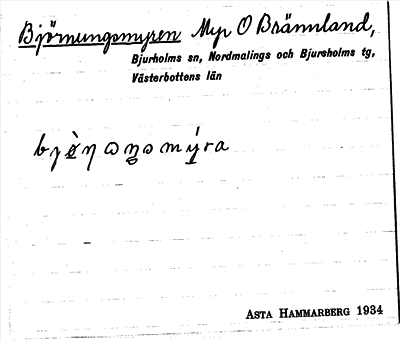 Björnungsmyren Myr O Brännland,
Bjurholms sn, Nordmalings och Bjursholms tg,
Västerbottens län
ASTA HAMMARBERG 1934